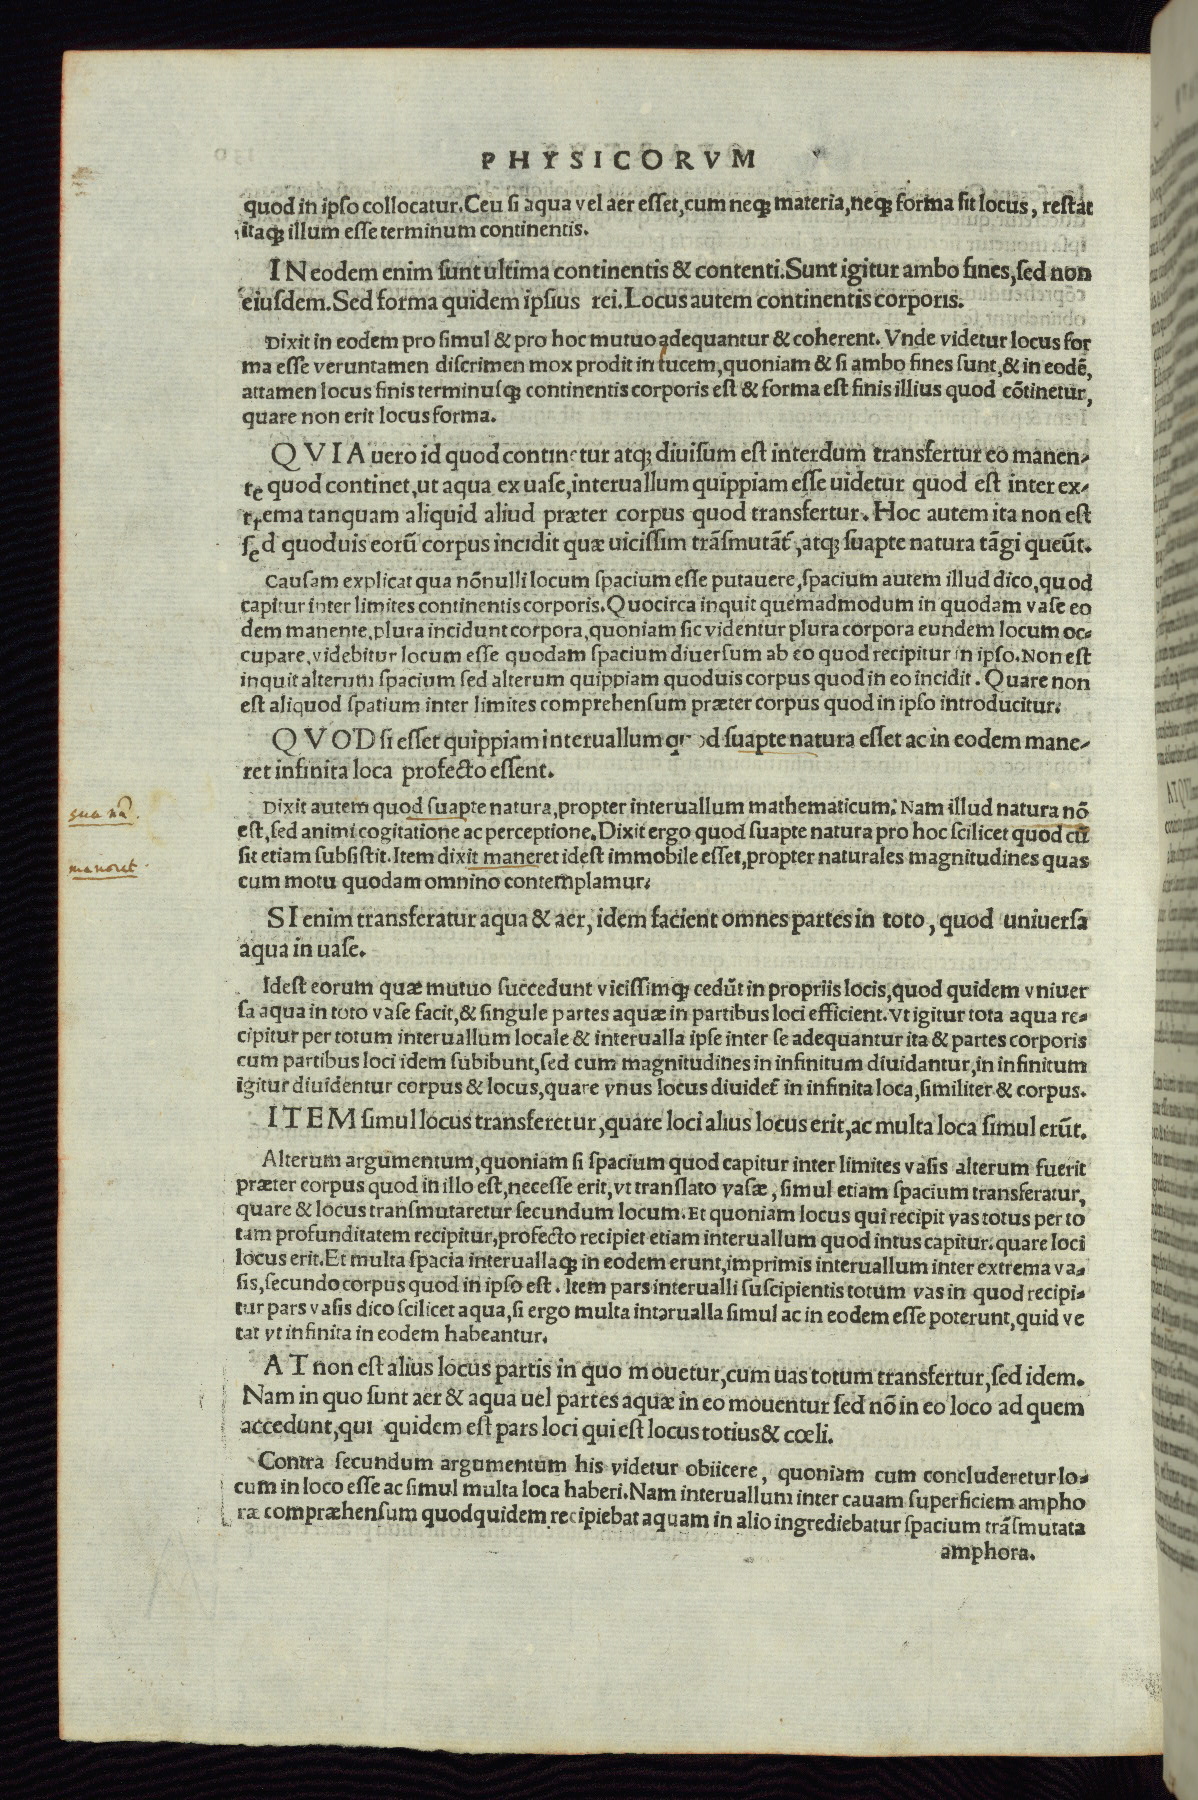 PHYSICORVM
quod in ipso collocatur. Ceu si aqua vel aer esset, cum neqꝫ materia, neqꝫ forma sit locus, restat
itaqꝫ illum esse terminum continentis.
IN eodem enim sunt ultima continentis & contenti. Sunt igitur ambo fines, sed non
eiusdem. Sed forma quidem ipsius rei. Locus autem continentis corporis.
Dixit in eodem pro simul & pro hoc mutuo adequantur & coherent. Vnde videtur locus for
ma esse veruntamen discrimen mox prodit in lucem, quoniam & si ambo fines sunt, & in eodē,
attamen locus finis terminusqꝫ continentis corporis est & forma est finis illius quod cōtinetur,
quare non erit locus forma.
QVIA uero id quod continetur atqꝫ diuisum est interdum transfertur eo manen-
te quod continet, ut aqua ex uase, interuallum quippiam esse uidetur quod est inter ex-
trema tanquam aliquid aliud præter corpus quod transfertur. Hoc autem ita non est
sed quoduis eorū corpus incidit quæ uicissim trāsmutāt᷑, atqꝫ suapte natura tāgi queūt.
Causam explicat qua nōnulli locum spacium esse putauere, spacium autem illud dico, quod
capitur inter limites continentis corporis. Quocirca inquit quemadmodum in quodam vase eo
dem manente, plura incidunt corpora, quoniam sic videntur plura corpora eundem locum oc-
cupare, videbitur locum esse quodam spacium diuersum ab eo quod recipitur in ipso. Non est
inquit alterum spacium sed alterum quippiam quoduis corpus quod in eo incidit. Quare non
est aliquod spatium inter limites comprehensum præter corpus quod in ipso introducitur.
QVOD si esset quippiam interuallum quod suapte natura esset ac in eodem mane-
ret infinita loca profecto essent.
Dixit autem quod suapte natura, propter interuallum mathematicum. Nam illud natura nō
sua nā.
est, sed animi cogitatione ac perceptione. Dixit ergo quod suapte natura pro hoc scilicet quod cū
sit etiam subsistit. Item dixit maneret idest immobile esset, propter naturales magnitudines quas
maneret.
cum motu quodam omnino contemplamur.
SI enim transferatur aqua & aer, idem facient omnes partes in toto, quod uniuersa
aqua in uase.
Idest eorum quæ mutuo succedunt vicissimqꝫ cedūt in propriis locis, quod quidem vniuer
sa aqua in toto vase facit, & singule partes aquæ in partibus loci efficient. Vt igitur tota aqua re-
cipitur per totum interuallum locale & interualla ipse inter se adequantur ita & partes corporis
cum partibus loci idem subibunt, sed cum magnitudines in infinitum diuidantur, in infinitum
igitur diuidentur corpus & locus, quare vnus locus diuidet᷑ in infinita loca, similiter & corpus.
ITEM simul locus transferetur, quare loci alius locus erit, ac multa loca simul erūt.
Alterum argumentum, quoniam si spacium quod capitur inter limites vasis alterum fuerit
præter corpus quod in illo est, necesse erit, vt translato vasæ, simul etiam spacium transferatur,
quare & locus transmutaretur secundum locum. Et quoniam locus qui recipit vas totus per to
tam profunditatem recipitur, profecto recipiet etiam interuallum quod intus capitur. quare loci
locus erit. Et multa spacia interuallaqꝫ in eodem erunt, imprimis interuallum inter extrema va-
sis, secundo corpus quod in ipso est. Item pars interualli suscipientis totum vas in quod recipi-
tur pars vasis dico scilicet aqua, si ergo multa interualla simul ac in eodem esse poterunt, quid ve
tat vt infinita in eodem habeantur.
AT non est alius locus partis in quo mouetur, cum uas totum transfertur, sed idem.
Nam in quo sunt aer & aqua uel partes aquæ in eo mouentur sed nō in eo loco ad quem
accedunt, qui quidem est pars loci qui est locus totius & cœli.
Contra secundum argumentum his videtur obiicere, quoniam cum concluderetur lo-
cum in loco esse ac simul multa loca haberi. Nam interuallum inter cauam superficiem ampho
ræ compræhensum quodquidem recipiebat aquam in alio ingrediebatur spacium trāsmutata
amphora.